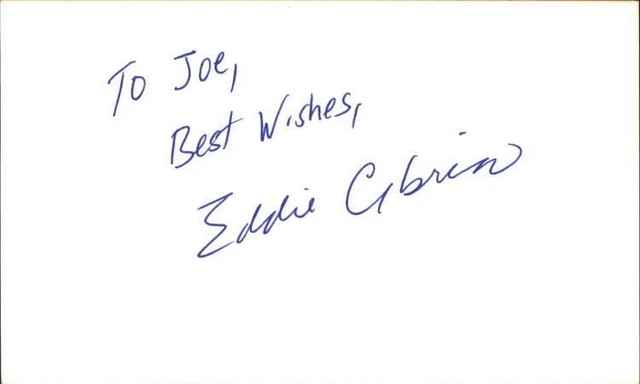 To Joe,
Best Wishes,
Eddie Cibrian